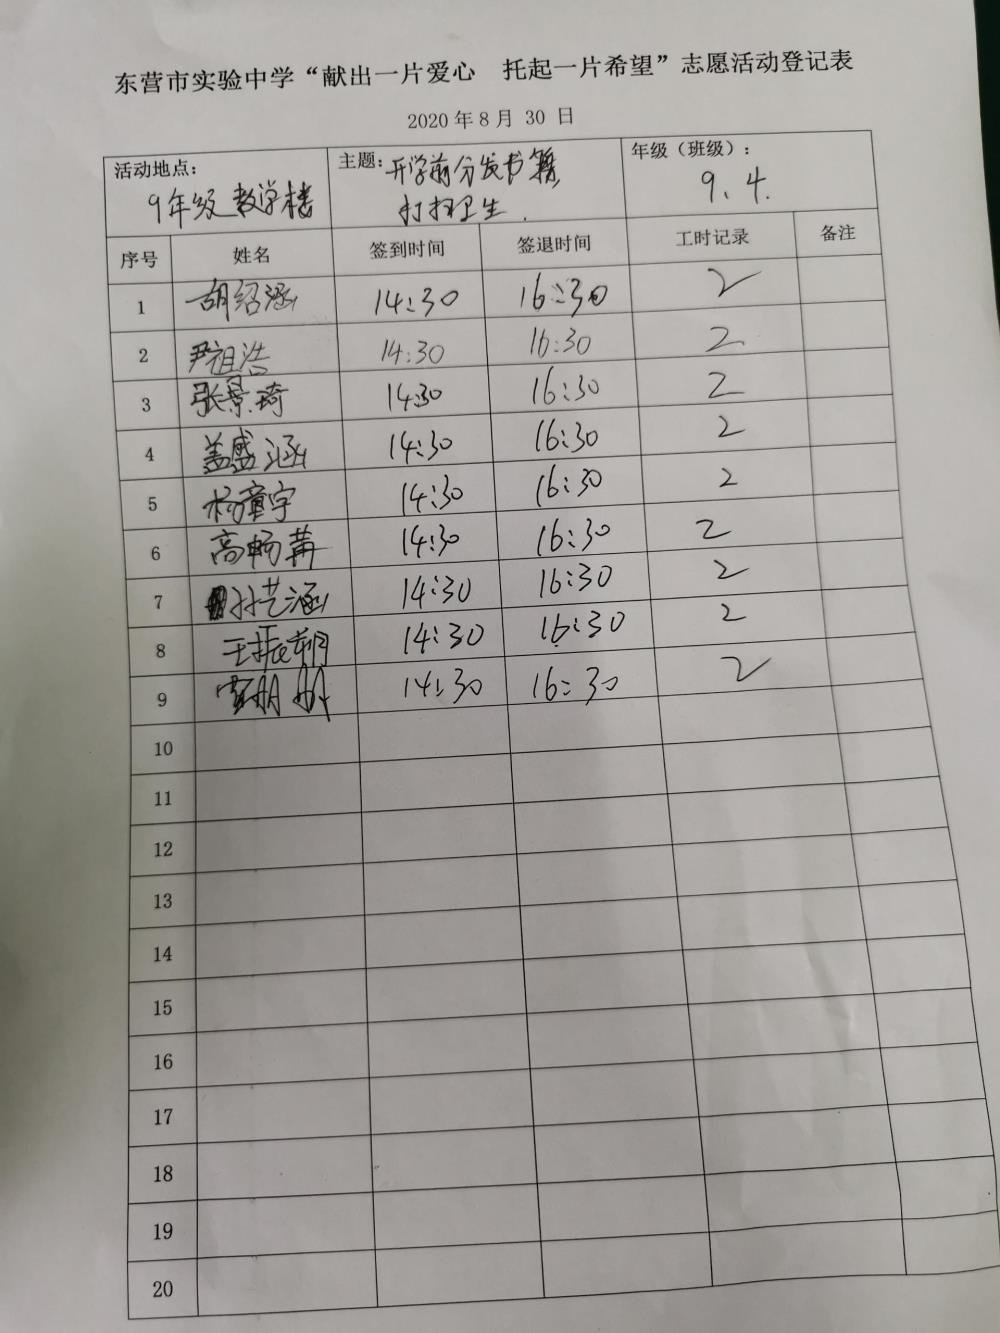 东营市实验中学“献出一片爱心 托起一片希望”志愿活动登记表
2020年8月 30 日
活动地点： 主题： 年级（班级）：
9年级教学楼 开学前分发书籍， 9.4.
打扫卫生.
序号 姓名 签到时间 签退时间 工时记录 备注
1 胡绍涵 14:30 16:30 2
2 尹祖浩 14:30 16:30 2
3 张景琦 14:30 16:30 2
4 盖盛涵 14:30 16:30 2
5 杨章宇 14:30 16:30 2
6 高畅苒 14:30 16:30 2
7 孙艺涵 14:30 16:30 2
8 王振朔 14:30 16:30 2
9 14:30 16:30 2
10
11
12
13
14
15
16
17
18
19
20